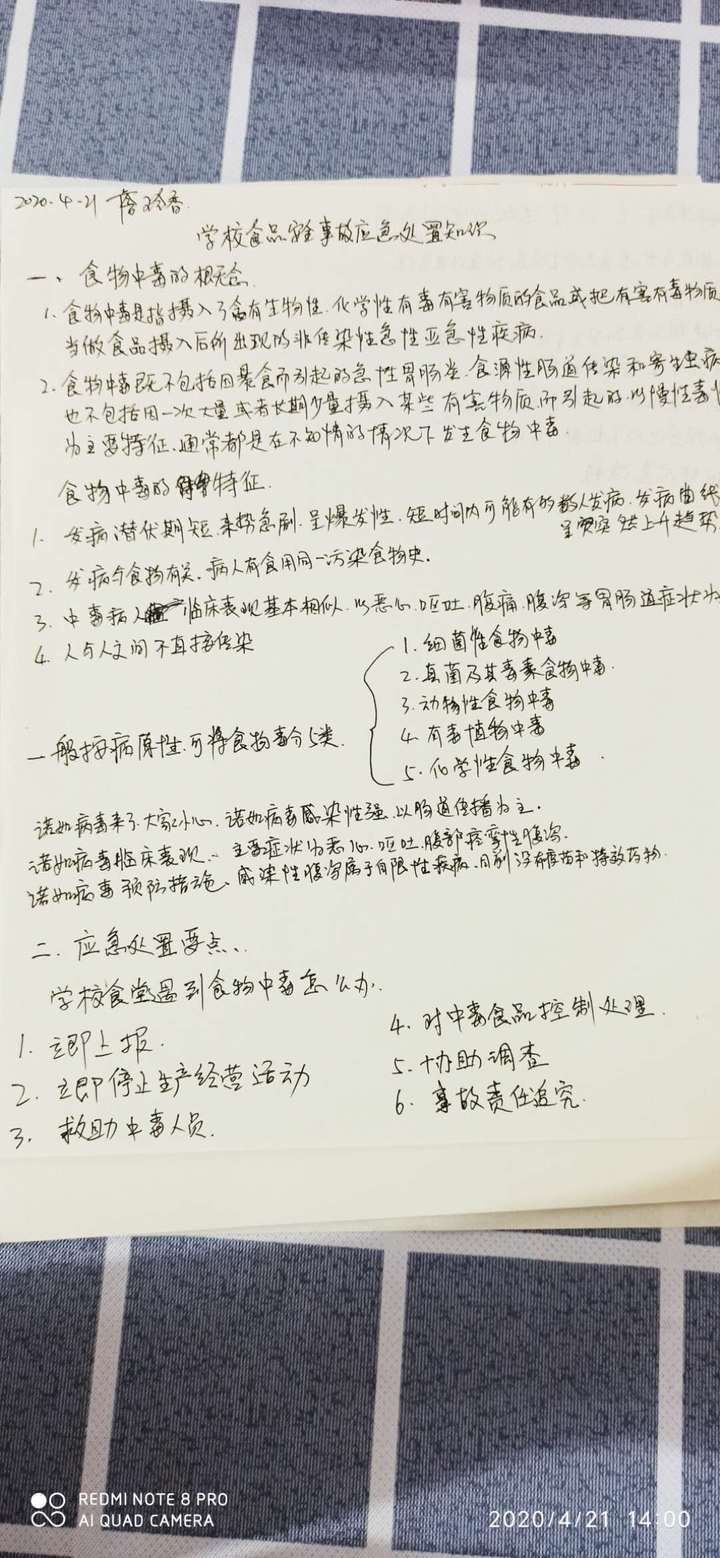 2020.4.21
学校食品安全事故应急处置知识
一、食物中毒的概念
1. 食物中毒是指摄入了含有生物性、化学性有毒有害物质的食品或把有害有毒物质
当做食品摄入后所出现的非传染性急性亚急性疾病.
2. 食物中毒既不包括因暴食而引起的急性胃肠炎、食源性肠道传染和寄生虫病
也不包括因一次大量或者长期少量摄入某些有害物质而引起的以慢性毒性
为主要特征.通常都是在不知情的情况下发生食物中毒
食物中毒的特征.
1. 发病潜伏期短.来势急剧.呈爆发性.短时间内可能有的人发病.发病曲线
呈突然上升趋势
2. 发病与食物有关.病人有食用同一污染食物史.
3. 中毒病人临床表现基本相似.以恶心、呕吐、腹痛、腹泻等胃肠道症状为
4. 人与人之间不直接传染
一般按病原性.可将食物毒分5类.
1. 细菌性食物中毒
2. 真菌及其毒素食物中毒.
3. 动物性食物中毒
4. 有毒植物中毒
5. 化学性食物中毒
诺如病毒来了.大家小心.诺如病毒感染性强.以肠道传播为主.
诺如病毒临床表现.主要症状为恶心.呕吐.腹部痉挛性腹泻.
诺如病毒预防措施、感染性腹泻属于自限性疾病.目前没有疫苗和特效药物.
二.应急处置要点、
学校食堂遇到食物中毒怎么办.
1. 立即上报.
2. 立即停止生产经营活动
3. 救助中毒人员.
4. 对中毒食品控制处理.
5. 协助调查
6. 事故责任追究.
REDMI NOTE 8 PRO
AI QUAD CAMERA
2020/4/21 14:00